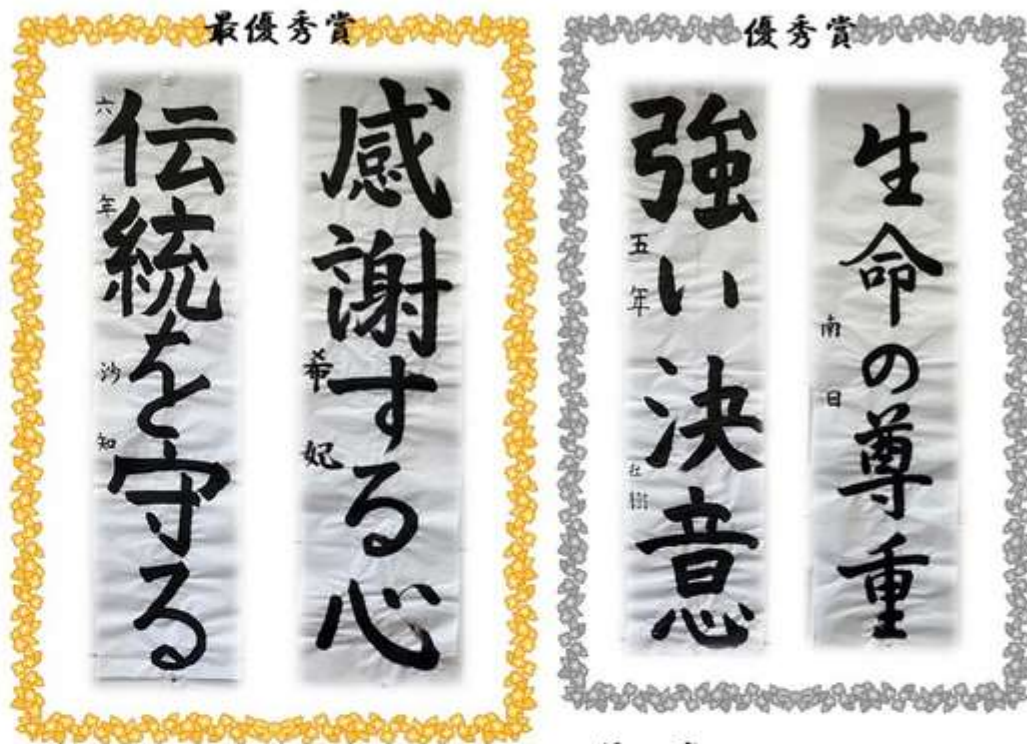 最優秀賞
感謝する心
希妃
伝統を守る
六年 沙知
優秀賞
生命の尊重
南日
強い決意
五年